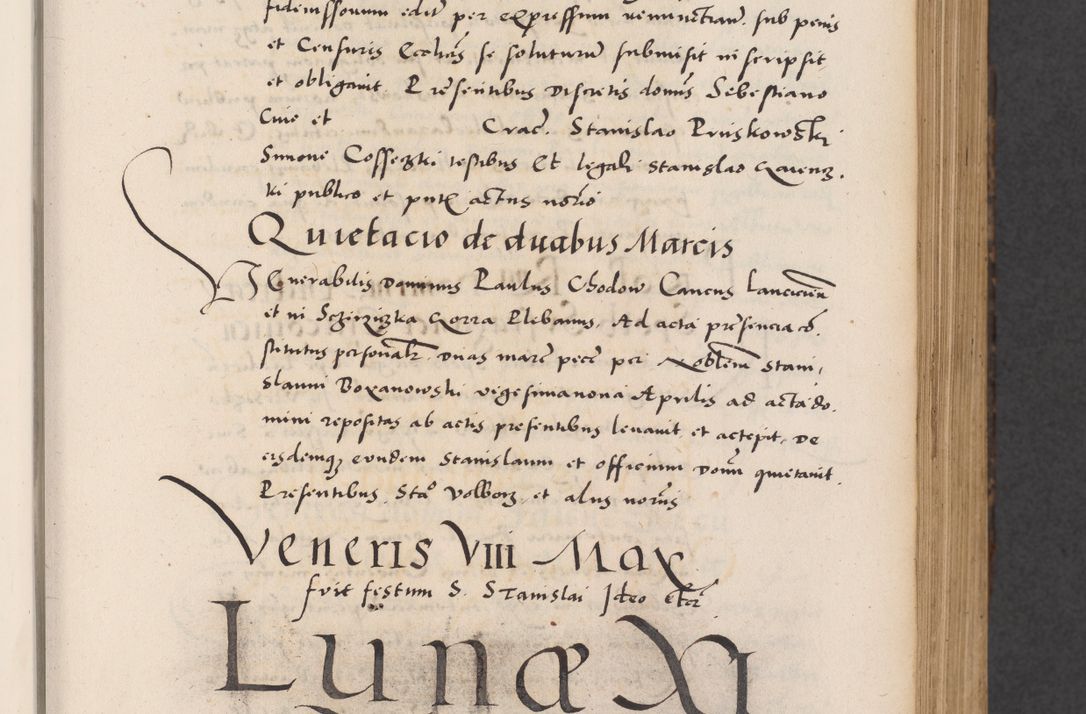 fideiussorum edit per expressam renunctiam sub penis
et Censuris Ecclias se soluturum submisit in scripsit
et obligavit. Presentibus Discretis domis Sebestiano
Cuio et Crac. Stanislao Pruskowski
Simone Cosseczki testibus Et legali Stanislao
ki publico et actus norio
Quietacio de duabus Marcis
Venerabilis Dominus Paulus Chodow Cancus lanciciem
et in Plebanus. Ad acta presencia co
stitutus personalr. Duas marc pecc per Noblem Stani
slaum Boxanowski vigesimanona Aprilis ad acta do
mini repositas ab actis presentibus levavit et accepit, De
eisdemq eundem Stanislaum et officium Domi quietavit.
Presentibus Stao Wolborz et aliis noriis
Veneris VIII May
fuit festum S. Stanislai Ideo etc
Lunæ XI